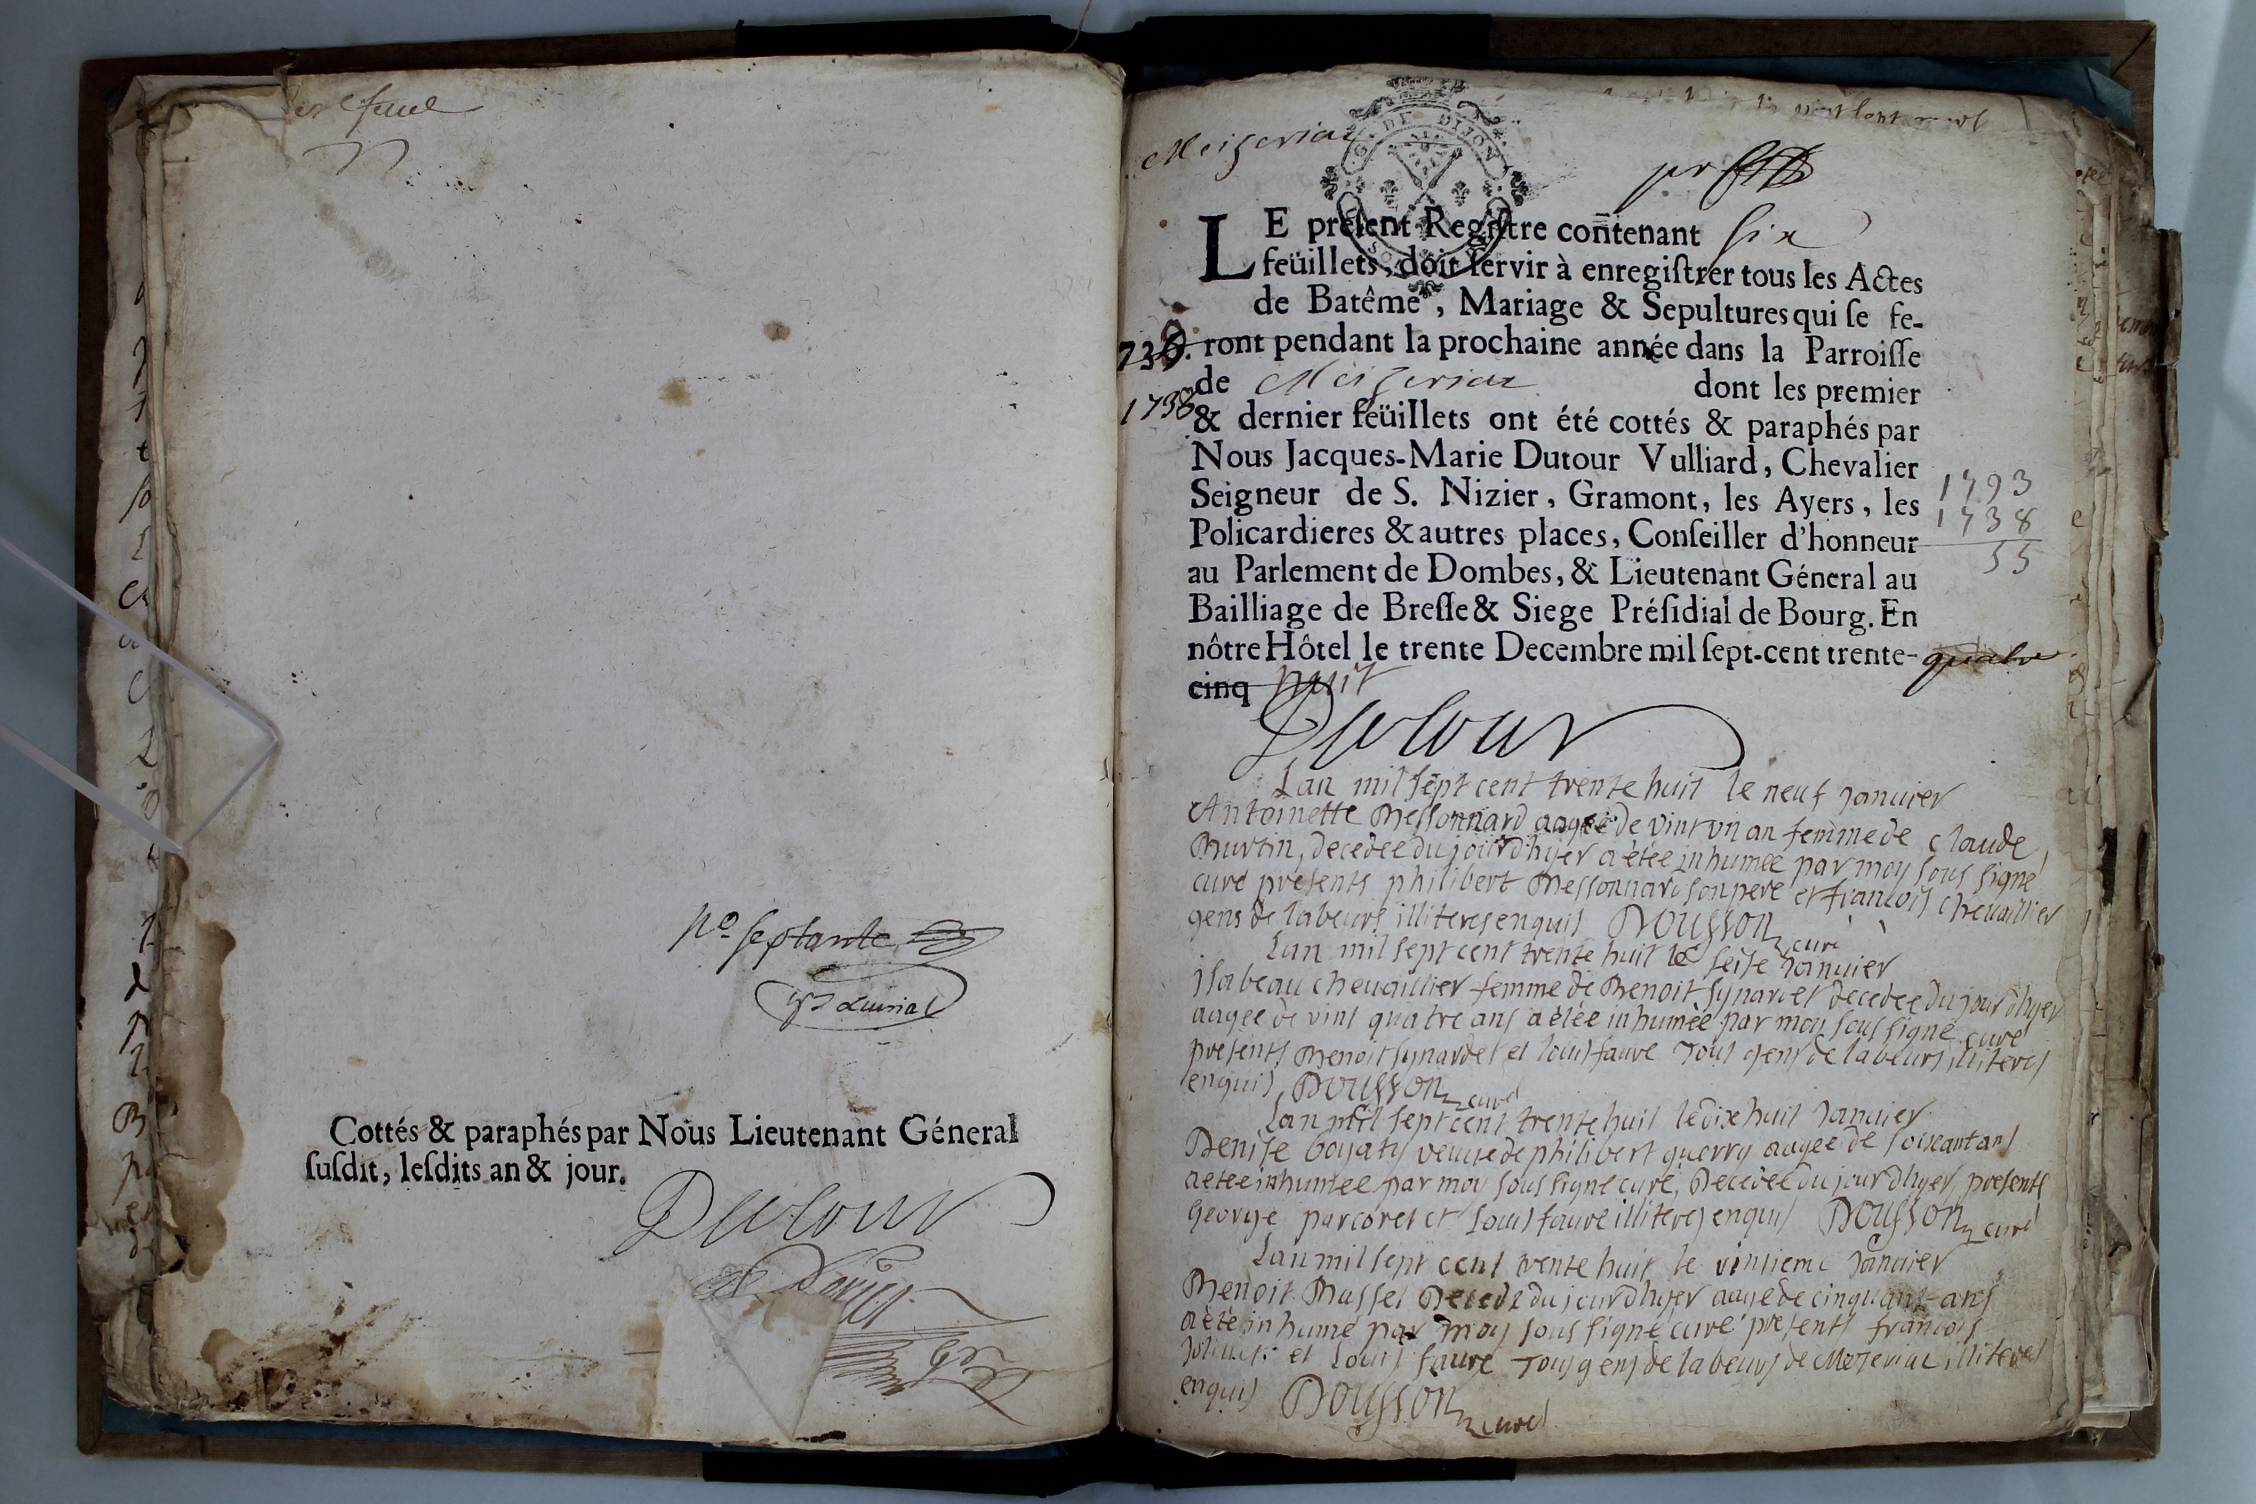 No septante
Cottés & paraphés par Nous Lieutenant Géneral
ſuſdit, leſdits an & jour.
Dutour
Meizeriat
G. DE DIJON
LE preſent Regiſtre contenant six
feüillets, doit ſervir à enregiſtrer tous les Actes
de Batême, Mariage & Sepultures qui ſe fe-
ront pendant la prochaine année dans la Parroiſſe
de Meizeriat dont les premier
1738
& dernier feüillets ont été cottés & paraphés par
Nous Jacques-Marie Dutour Vulliard, Chevalier
Seigneur de S. Nizier, Gramont, les Ayers, les
Policardieres & autres places, Conſeiller d'honneur
au Parlement de Dombes, & Lieutenant Géneral au
Bailliage de Breſſe & Siege Préſidial de Bourg. En
nôtre Hôtel le trente Decembre mil ſept-cent trente-quatre
cinq huit
1793
1738
55
Dutour
Lan mil sept cent trente huit le neuf Janvier
Antoinette Messonnard aagée de vint un an femme de claude
Burtin, decedée du jour d'hyer a étée inhumée par moy sous signé
curé presents philibert Messonnard son pere et francois chevaillier
gens de labeurs illiteres enquis DOUSSON curé
Lan mil sept cent trente huit le seise Janvier
Isabeau chevaillier femme de Benoit Synardet decedée du jour d'hyer
aagée de vint quatre ans a étée inhumée par moy sous signé curé
presents Benoit Synardet et louis faure Tous gens de labeurs illiteres
enquis DOUSSON curé
Lan mil sept cent trente huit le dix huit Janvier
Denise Goyaty veuve de philibert querry aagée de soixant ans
a étée inhumée par moy sous signé curé, Decedée du jour d'hyer, presents
George parcoret et Louis faure illiteres enquis DOUSSON curé
Lan mil sept cent trente huit le vintieme Janvier
Benoit Bussel Decedé du jour d'hyer aagé de cinquant ans
a été inhumé par moy sous signé curé presents francois
et Louis faure Tous gens de labeurs de Mezeriat illiteres
enquis DOUSSON curé